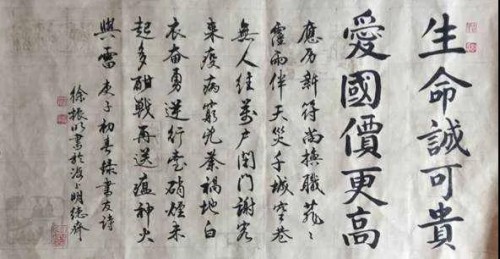 生命誠可貴
愛國價更高
新符尚
雨伴天災千城空巷
無人往萬户閉門謝客
來疫病窮兇禍地白
衣奮勇逆行硝煙未
起多酣戰再送瘟神火
與雷 庚子初春錄書友詩
徐振書於海上明德齋